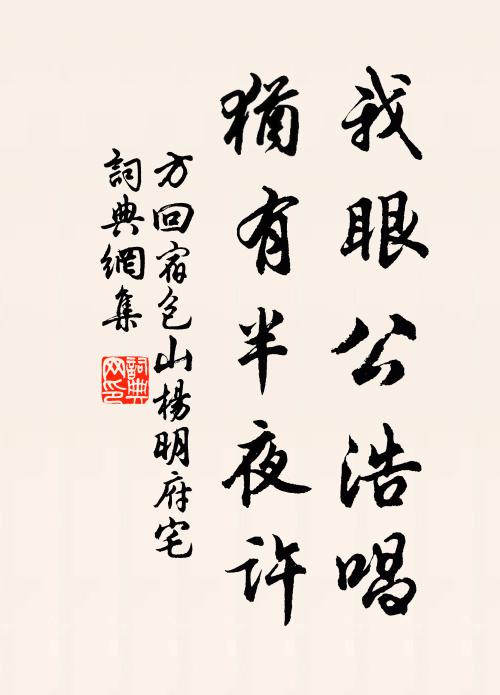 我眼公浩唱
猶有半夜許
方回宿包山楊明府宅
詞典網集
詞典
网印